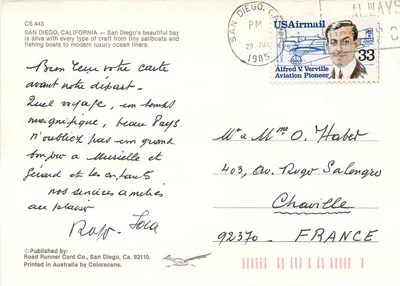 CS 443
SAN DIEGO, CALIFORNIA — San Diego's beautiful bay
is alive with every type of craft from tiny sailboats and
fishing boats to modern luxury ocean liners.
Bien reçu votre carte
avant notre départ.
Quel voyage, un temps
magnifique, beau Pays.
N'oubliez pas un grand
bonjour à Murielle et
Gérard et les enfants
nos sincères amitiés
au plaisir
©Published by:
Road Runner Card Co., San Diego, Ca. 92110.
Printed in Australia by Colorscans.
SAN DIEGO, CA
PM
29 JUL
1985
ALWAYS
USAirmail
33
Alfred V. Verville
Aviation Pioneer
Mr & Mme O. Habet
403, av. Roger Salengro
Chaville
92370- FRANCE